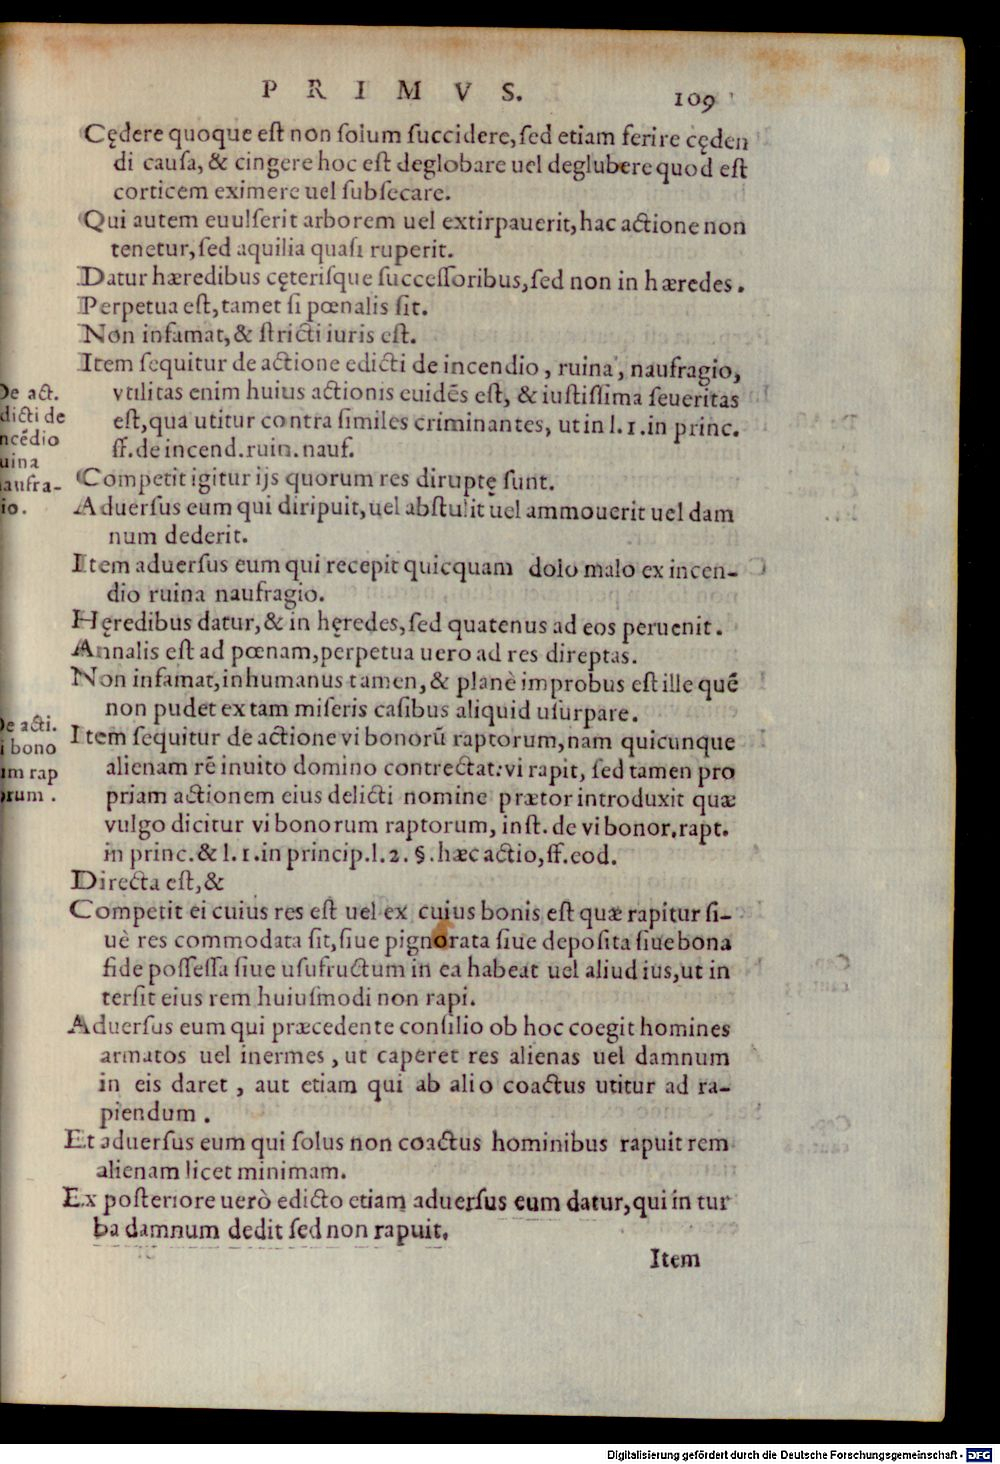 PRIMVS.
109
Cędere quoque eſt non ſolum ſuccidere, ſed etiam ferire cęden
di cauſa, & cingere hoc eſt deglobare uel deglubere quod eſt
corticem eximere uel ſubſecare.
Qui autem euulſerit arborem uel extirpauerit, hac actione non
tenetur, ſed aquilia quaſi ruperit.
Datur hæredibus cęteriſque ſucceſſoribus, ſed non in hæredes.
Perpetua eſt, tamet ſi pœnalis ſit.
Non infamat, & ſtricti iuris eſt.
Item ſequitur de actione edicti de incendio, ruina, naufragio,
vtilitas enim huius actionis euidēs eſt, & iuſtiſſima ſeueritas
eſt, qua utitur contra ſimiles criminantes, ut in l. 1. in princ.
ff. de incend. ruin. nauf.
De act.
dicti de
ncēdio
uina
aufra-
io.
Competit igitur ijs quorum res diruptę ſunt.
Aduerſus eum qui diripuit, uel abſtulit uel ammouerit uel dam
num dederit.
Item aduerſus eum qui recepit quicquam dolo malo ex incen-
dio ruina naufragio.
Hęredibus datur, & in hęredes, ſed quatenus ad eos peruenit.
Annalis eſt ad pœnam, perpetua uero ad res direptas.
Non infamat, inhumanus tamen, & planè improbus eſt ille quē
non pudet ex tam miſeris caſibus aliquid uſurpare.
De acti.
i bono
um rap
orum.
Item ſequitur de actione vi bonorū raptorum, nam quicunque
alienam rē inuito domino contrectat: vi rapit, ſed tamen pro
priam actionem eius delicti nomine prætor introduxit quæ
vulgo dicitur vi bonorum raptorum, inſt. de vi bonor. rapt.
in princ. & l. 1. in princip. l. 2. §. hæc actio, ff. eod.
Directa eſt, &
Competit ei cuius res eſt uel ex cuius bonis eſt quæ rapitur ſi-
uè res commodata ſit, ſiue pignorata ſiue depoſita ſiue bona
fide poſſeſſa ſiue uſufructum in ea habeat uel aliud ius, ut in
terſit eius rem huiuſmodi non rapi.
Aduerſus eum qui præcedente conſilio ob hoc coegit homines
armatos uel inermes, ut caperet res alienas uel damnum
in eis daret, aut etiam qui ab alio coactus utitur ad ra-
piendum.
Et aduerſus eum qui ſolus non coactus hominibus rapuit rem
alienam licet minimam.
Ex poſteriore uerò edicto etiam aduerſus eum datur, qui in tur
ba damnum dedit ſed non rapuit.
Item
Digitalisierung gefördert durch die Deutsche Forschungsgemeinschaft - DFG